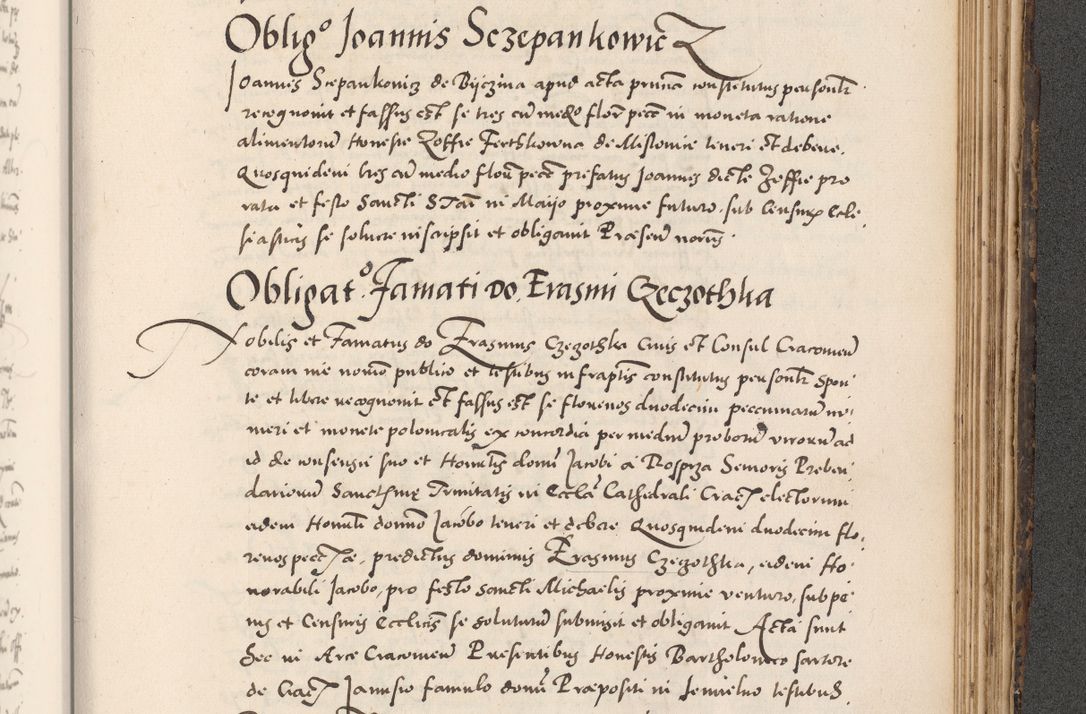 Oblig° Joannis Sczepankowicz
Joannes Sczepankowicz de Byczina apud acta pñna constitutus personlr
recognouit et fassus est se tres cũ medº flor pecc in moneta ratione
alimentorũ Honeste Zoffie Ferthkowna de Mislowice teneri et debere.
Quosquidem tres cũ medio floñ pecc prefatus Joannes dicte Zoffie pro
rata et festo Sancti Stañ in Maijo proxime futuro, sub Censurx Ecle
siasticis se soluere inscripsit et obligauit Præsen norus.
Obligat°. Famati Do. Erasmi Czeczothka
Nobilis et Famatus do Erasmus Czeczothka Ciuis et Consul Cracouieñ
coram me notario publico et testibus infraptis constitutus personlr spon
te et libere recognouit et fassus est se florenos duodecim peccuniarũ nu
meri et monete polonicalis ex concordia per mediũ proborũ virorũ ad
id de consensu suo et Honlis domi Jacobi a Rospza Senioris Preben
dariorũ Sanctissime Trinitatis in Eccla Cathedrali Crac electorum
eidem Honli domno Jacobo teneri et debere Quosquidem duodecim flo
renos pecc, predictus dominus Erasmus Czeczothka, eidem Ho
norabili Jacobo, pro festo sancti Michaelis proxime venturo, sub pe
nis et Censuris Ecclicis se soluturũ submisit et obligauit Acta sunt
hec in Arce Cracouieñ Presentibus Honestis Bartholomeo sartore
de Crac Janusio famulo domi Præpositi in testibus